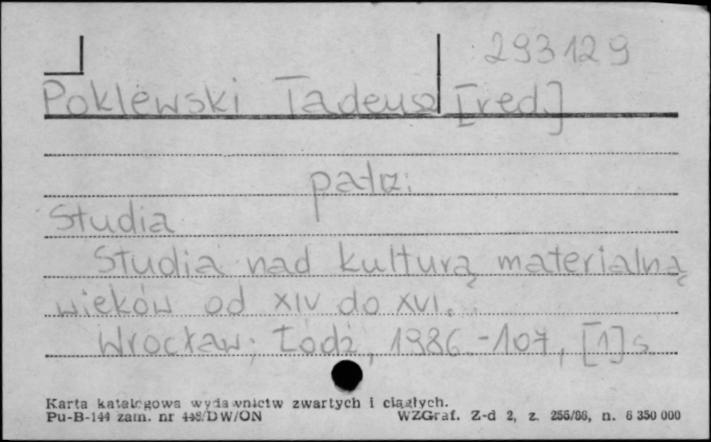 293129
Poklewski Tadeusz [red.]
patrz:
Studia
Studia nad kulturą materialną
wieków od XIV do XVI.
Wrocław; Łódź, 1986.-107, [1] s.
Karta katalogowa wydawnictw zwartych i ciągłych.
Pu-B-144 zam. nr 448/DW/ON WZGraf. Z-d 2, z. 256/86, n. 6 350 000